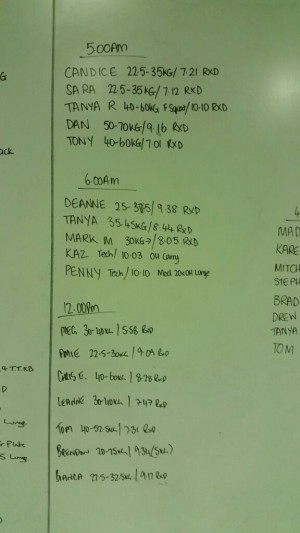 5:00AM
CANDICE 22.5-35KG/ 7:21 RXD
SARA 22.5-35KG/ 7:12 RXD
TANYA R 40-60KG F Squat/10:10 RXD
DAN 50-70KG/9:16 RXD
TONY 40-60KG/7:01 RXD
6:00AM
DEANNE 25- / 9:38 RXD
TANYA 35-45KG/ 8:44 RXD
MARK M 30KG / 8:05 RXD
KAZ Tech/ 10:03 OH Carry
PENNY Tech/ 10:10 Mod OH Lunge
12:00pm
MEG 30-40KG / 5:58 RxD
AMIE 22.5-30KG / 9:09 RxD
CHRIS E. 40-60KG / 8:28 RxD
LEANNE 30-40KG / 7:47 RxD
TOM 40-52.5KG / 7:31 RxD
BRENDAN 20-25KG / (5KG)
BIANCA 22.5-32.5KG / 9:17 RxD
G
ack
4 T.T. KB
D
Lunge
Plate
S Lung
MAD
KARE
MITCH
STEPH
BRAD
DREW
TANYA
TOM